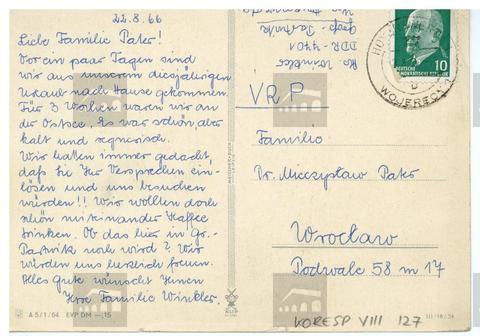 22.8.66
Liebe Familie Pater!
Vor ein paar Tagen sind
wir aus unserem diesjährigen
Urlaub nach Hause gekommen.
Für 3 Wochen waren wir an
der Ostsee. Es war schön, aber
kalt und regnerisch.
Wir hatten immer gedacht,
daß Sie Ihr Versprechen ein-
lösen und uns besuchen
würden!! Wir wollten doch
schön miteinander Kaffee
trinken. Ob das hier in Gr.-
Partwitz noch wird? Wir
würden uns herzlich freuen.
Alles Gute wünscht Ihnen
Ihre Familie Winkler.
A 5/1/64 EVP DM —,15
Winkler
DDR 7701
WOJERECY
10
DEUTSCHE
DEMOKRATISCHE REPUBLIK
VRP
Familie
Dr. Mieczysław Pater
Wrocław
Podwale 58 m 17
III/18/34
KORESP VIII 127